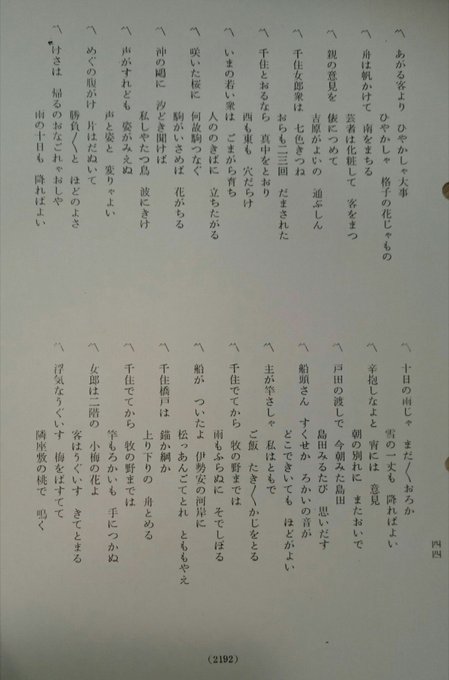 〽 あがる客より ひやかしゃ大事
ひやかしゃ 格子の花じゃもの
〽 舟は帆かけて 南をまちる
芸者は化粧して 客をまつ
〽 親の意見を 俵につめて
吉原がよいの 通ぶしん
〽 千住女郎衆は 七色きつね
おらも二三回 だまされた
〽 千住とおるなら 真中をとおり
西も東も 穴だらけ
〽 いまの若い衆は ごまがら育ち
人ののきばに 立ちたがる
〽 咲いた桜に 何故駒つなぐ
駒がいさめば 花がちる
〽 沖の鴎に 汐どき聞けば
私しやたつ鳥 波にきけ
〽 声がすれども 姿がみえぬ
声と姿と 変りゃよい
〽 めぐの腹がけ 片はだぬいて
勝負〳〵と ほどのよさ
〽 けさは 帰るのおなごれゃおしや
雨の十日も 降ればよい
〽 十日の雨じゃ まだ〳〵おろか
雪の一丈も 降ればよい
〽 辛抱しなよと 宵には 意見
朝の別れに またおいで
〽 戸田の渡しで 今朝みた島田
島田みるたび 思いだす
〽 船頭さん すくせか ろかいの音が
どこできいても ほどがよい
〽 主が竿さしゃ 私はともで
ご飯 たき〳〵かじをとる
〽 千住でてから 牧の野までは
雨もふらぬに そでしぼる
〽 船が ついたよ 伊勢安の河岸に
松っあんごてとれ とももやえ
〽 千住橋戸は 錨か綱か
上り下りの 舟とめる
〽 千住でてから 牧の野までは
竿もろかいも 手につかぬ
〽 女郎は二階の 小梅の花よ
客はうぐいす きてとまる
〽 浮気なうぐいす 梅をばすてて
隣座敷の桃で 鳴く
四四
(2192)